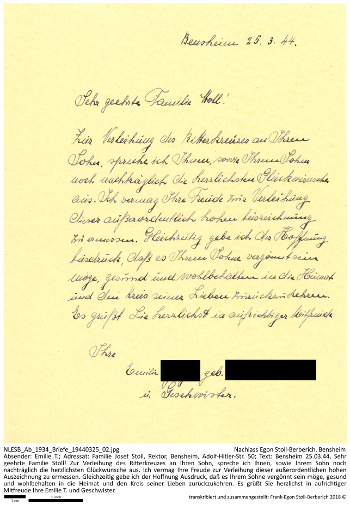 Bensheim 25. 3. 44.
Sehr geehrte Familie Stoll!
Zur Verleihung des Ritterkreuzes an Ihren
Sohn, spreche ich Ihnen, sowie Ihrem Sohn
noch nachträglich die herzlichsten Glückwünsche
aus. Ich vermag Ihre Freude zur Verleihung
dieser außerordentlich hohen Auszeichnung
zu ermessen. Gleichzeitig gebe ich der Hoffnung
Ausdruck, daß es Ihrem Sohne vergönnt sein
möge, gesund und wohlbehalten in die Heimat
und den Kreis seiner Lieben zurückzukehren.
Es grüßt Sie herzlichst in aufrichtiger Mitfreude
Ihre
Emilie geb.
u. Geschwister.
NLESB_Ab_1934_Briefe_19440325_02.jpg Nachlass Egon Stoll-Berberich, Bensheim
Absender: Emilie T.; Adressat: Familie Josef Stoll, Rektor, Bensheim, Adolf-Hitler-Str. 50; Text: Bensheim 25.03.44, Sehr
geehrte Familie Stoll! Zur Verleihung des Ritterkreuzes an Ihren Sohn, spreche ich Ihnen, sowie Ihrem Sohn noch
nachträglich die herzlichsten Glückwünsche aus. Ich vermag Ihre Freude zur Verleihung dieser außerordentlichen hohen
Auszeichnung zu ermessen. Gleichzeitig gebe ich der Hoffnung Ausdruck, daß es Ihrem Sohne vergönnt sein möge, gesund
und wohlbehalten in die Heimat und den Kreis seiner Lieben zurückzukehren. Es grüßt Sie herzlichst in aufrichtiger
Mitfreude Ihre Emilie T. und Geschwister.
1 cm 1 inch transkribiert und zusammengestellt: Frank-Egon Stoll-Berberich 2018 ©